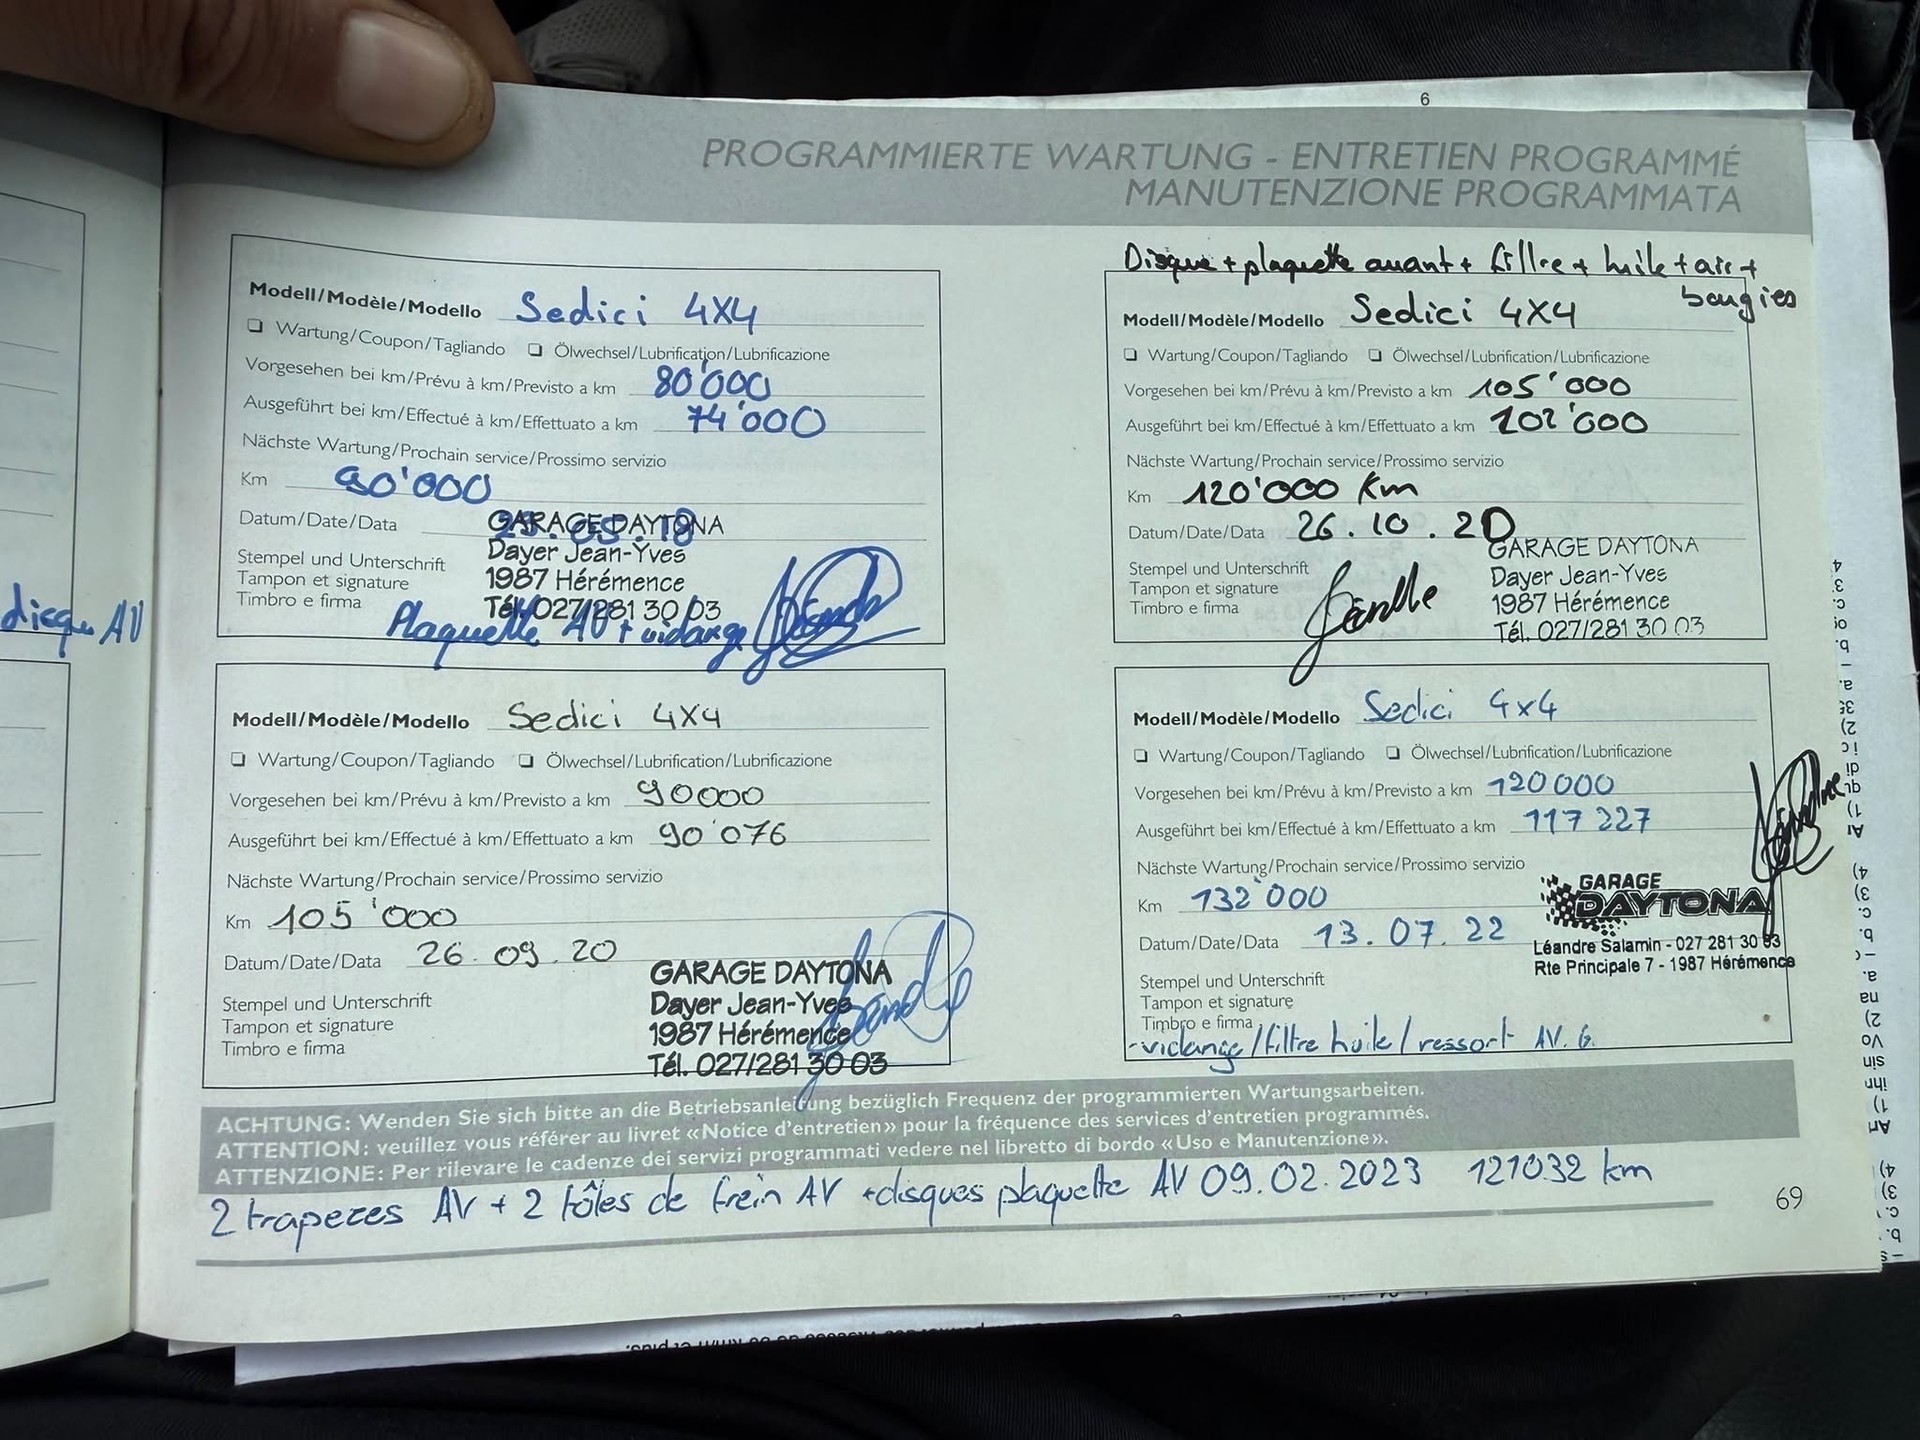 6
PROGRAMMIERTE WARTUNG - ENTRETIEN PROGRAMMÉ
MANUTENZIONE PROGRAMMATA
disque AV
Modell/Modèle/Modello Sedici 4X4
Wartung/Coupon/Tagliando Ölwechsel/Lubrification/Lubrificazione
Vorgesehen bei km/Prévu à km/Previsto a km 80'000
Ausgeführt bei km/Effectué à km/Effettuato a km 74'000
Nächste Wartung/Prochain service/Prossimo servizio
Km 90'000
Datum/Date/Data
GARAGE DAYTONA
Stempel und Unterschrift
Tampon et signature
Timbro e firma
Dayer Jean-Yves
1987 Hérémence
Tél. 027/281 30 03
Plaquette AV + vidange
Modell/Modèle/Modello Sedici 4X4
Wartung/Coupon/Tagliando Ölwechsel/Lubrification/Lubrificazione
Vorgesehen bei km/Prévu à km/Previsto a km 90000
Ausgeführt bei km/Effectué à km/Effettuato a km 90'076
Nächste Wartung/Prochain service/Prossimo servizio
Km 105'000
Datum/Date/Data 26.09.20
Stempel und Unterschrift
Tampon et signature
Timbro e firma
GARAGE DAYTONA
Dayer Jean-Yves
1987 Hérémence
Tél. 027/281 30 03
Disque + plaquette avant + fillre + huile + air +
bougies
Modell/Modèle/Modello Sedici 4X4
Wartung/Coupon/Tagliando Ölwechsel/Lubrification/Lubrificazione
Vorgesehen bei km/Prévu à km/Previsto a km 105'000
Ausgeführt bei km/Effectué à km/Effettuato a km 102'000
Nächste Wartung/Prochain service/Prossimo servizio
Km 120'000 Km
Datum/Date/Data 26.10.20
Stempel und Unterschrift
Tampon et signature
Timbro e firma
GARAGE DAYTONA
Dayer Jean-Yves
1987 Hérémence
Tél. 027/281 30 03
Modell/Modèle/Modello Sedici 4x4
Wartung/Coupon/Tagliando Ölwechsel/Lubrification/Lubrificazione
Vorgesehen bei km/Prévu à km/Previsto a km 120000
Ausgeführt bei km/Effectué à km/Effettuato a km 117 227
Nächste Wartung/Prochain service/Prossimo servizio
Km 132'000
Datum/Date/Data 13.07.22
GARAGE
DAYTONA
Léandre Salamin - 027 281 30 03
Rte Principale 7 - 1987 Hérémence
Stempel und Unterschrift
Tampon et signature
Timbro e firma
-vidange/filtre huile/ressort AV. G.
ACHTUNG: Wenden Sie sich bitte an die Betriebsanleitung bezüglich Frequenz der programmierten Wartungsarbeiten.
ATTENTION: veuillez vous référer au livret «Notice d'entretien» pour la fréquence des services d'entretien programmés.
ATTENZIONE: Per rilevare le cadenze dei servizi programmati vedere nel libretto di bordo «Uso e Manutenzione».
2 trapezes AV + 2 tôles de frein AV + disques plaquette AV 09.02.2023 121032 km
69